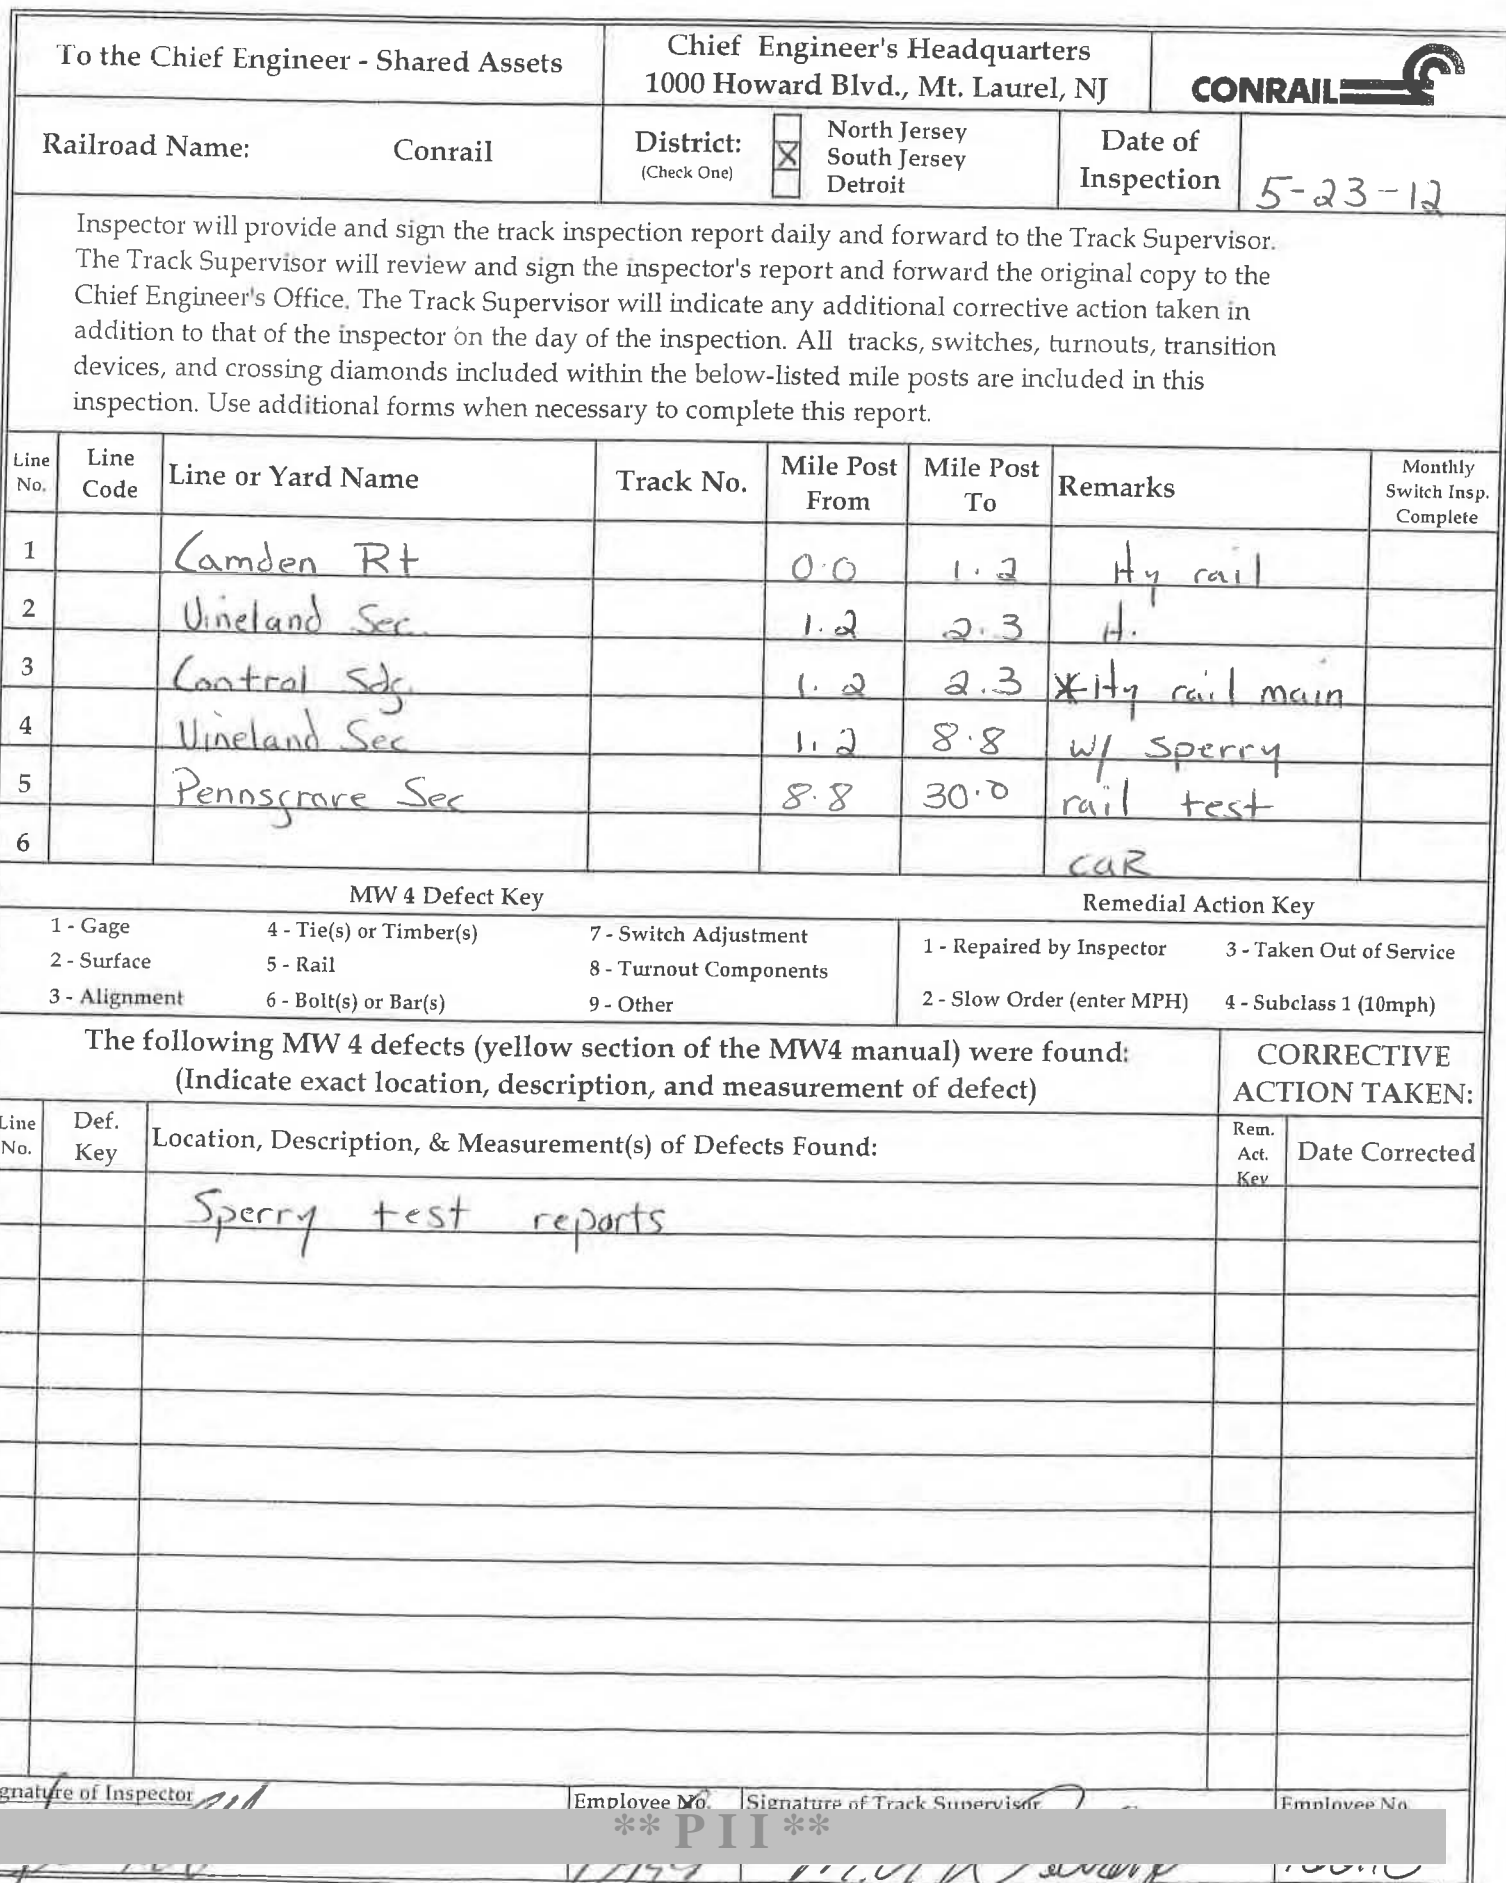 To the Chief Engineer - Shared Assets
Chief Engineer's Headquarters
1000 Howard Blvd., Mt. Laurel, NJ
CONRAIL
Railroad Name: Conrail
District:
(Check One)
North Jersey
X South Jersey
Detroit
Date of
Inspection
5-23-12
Inspector will provide and sign the track inspection report daily and forward to the Track Supervisor.
The Track Supervisor will review and sign the inspector's report and forward the original copy to the
Chief Engineer's Office. The Track Supervisor will indicate any additional corrective action taken in
addition to that of the inspector on the day of the inspection. All tracks, switches, turnouts, transition
devices, and crossing diamonds included within the below-listed mile posts are included in this
inspection. Use additional forms when necessary to complete this report.
Line No. Line Code Line or Yard Name Track No. Mile Post From Mile Post To Remarks Monthly Switch Insp. Complete
1 Camden Rt 0.0 1.2 Hy rail
2 Vineland Sec. 1.2 2.3 H.
3 Control Sdg. 1.2 2.3 *Hy rail main
4 Vineland Sec 1.2 8.8 w/ Sperry
5 Pennsgrove Sec 8.8 30.0 rail test
6 caR
MW 4 Defect Key
1 - Gage 4 - Tie(s) or Timber(s) 7 - Switch Adjustment
2 - Surface 5 - Rail 8 - Turnout Components
3 - Alignment 6 - Bolt(s) or Bar(s) 9 - Other
Remedial Action Key
1 - Repaired by Inspector 3 - Taken Out of Service
2 - Slow Order (enter MPH) 4 - Subclass 1 (10mph)
The following MW 4 defects (yellow section of the MW4 manual) were found:
(Indicate exact location, description, and measurement of defect)
CORRECTIVE
ACTION TAKEN:
Line No. Def. Key Location, Description, & Measurement(s) of Defects Found: Rem. Act. Key Date Corrected
Sperry test reports
gnature of Inspector Employee No. Signature of Track Supervisor Employee No.
**PII**